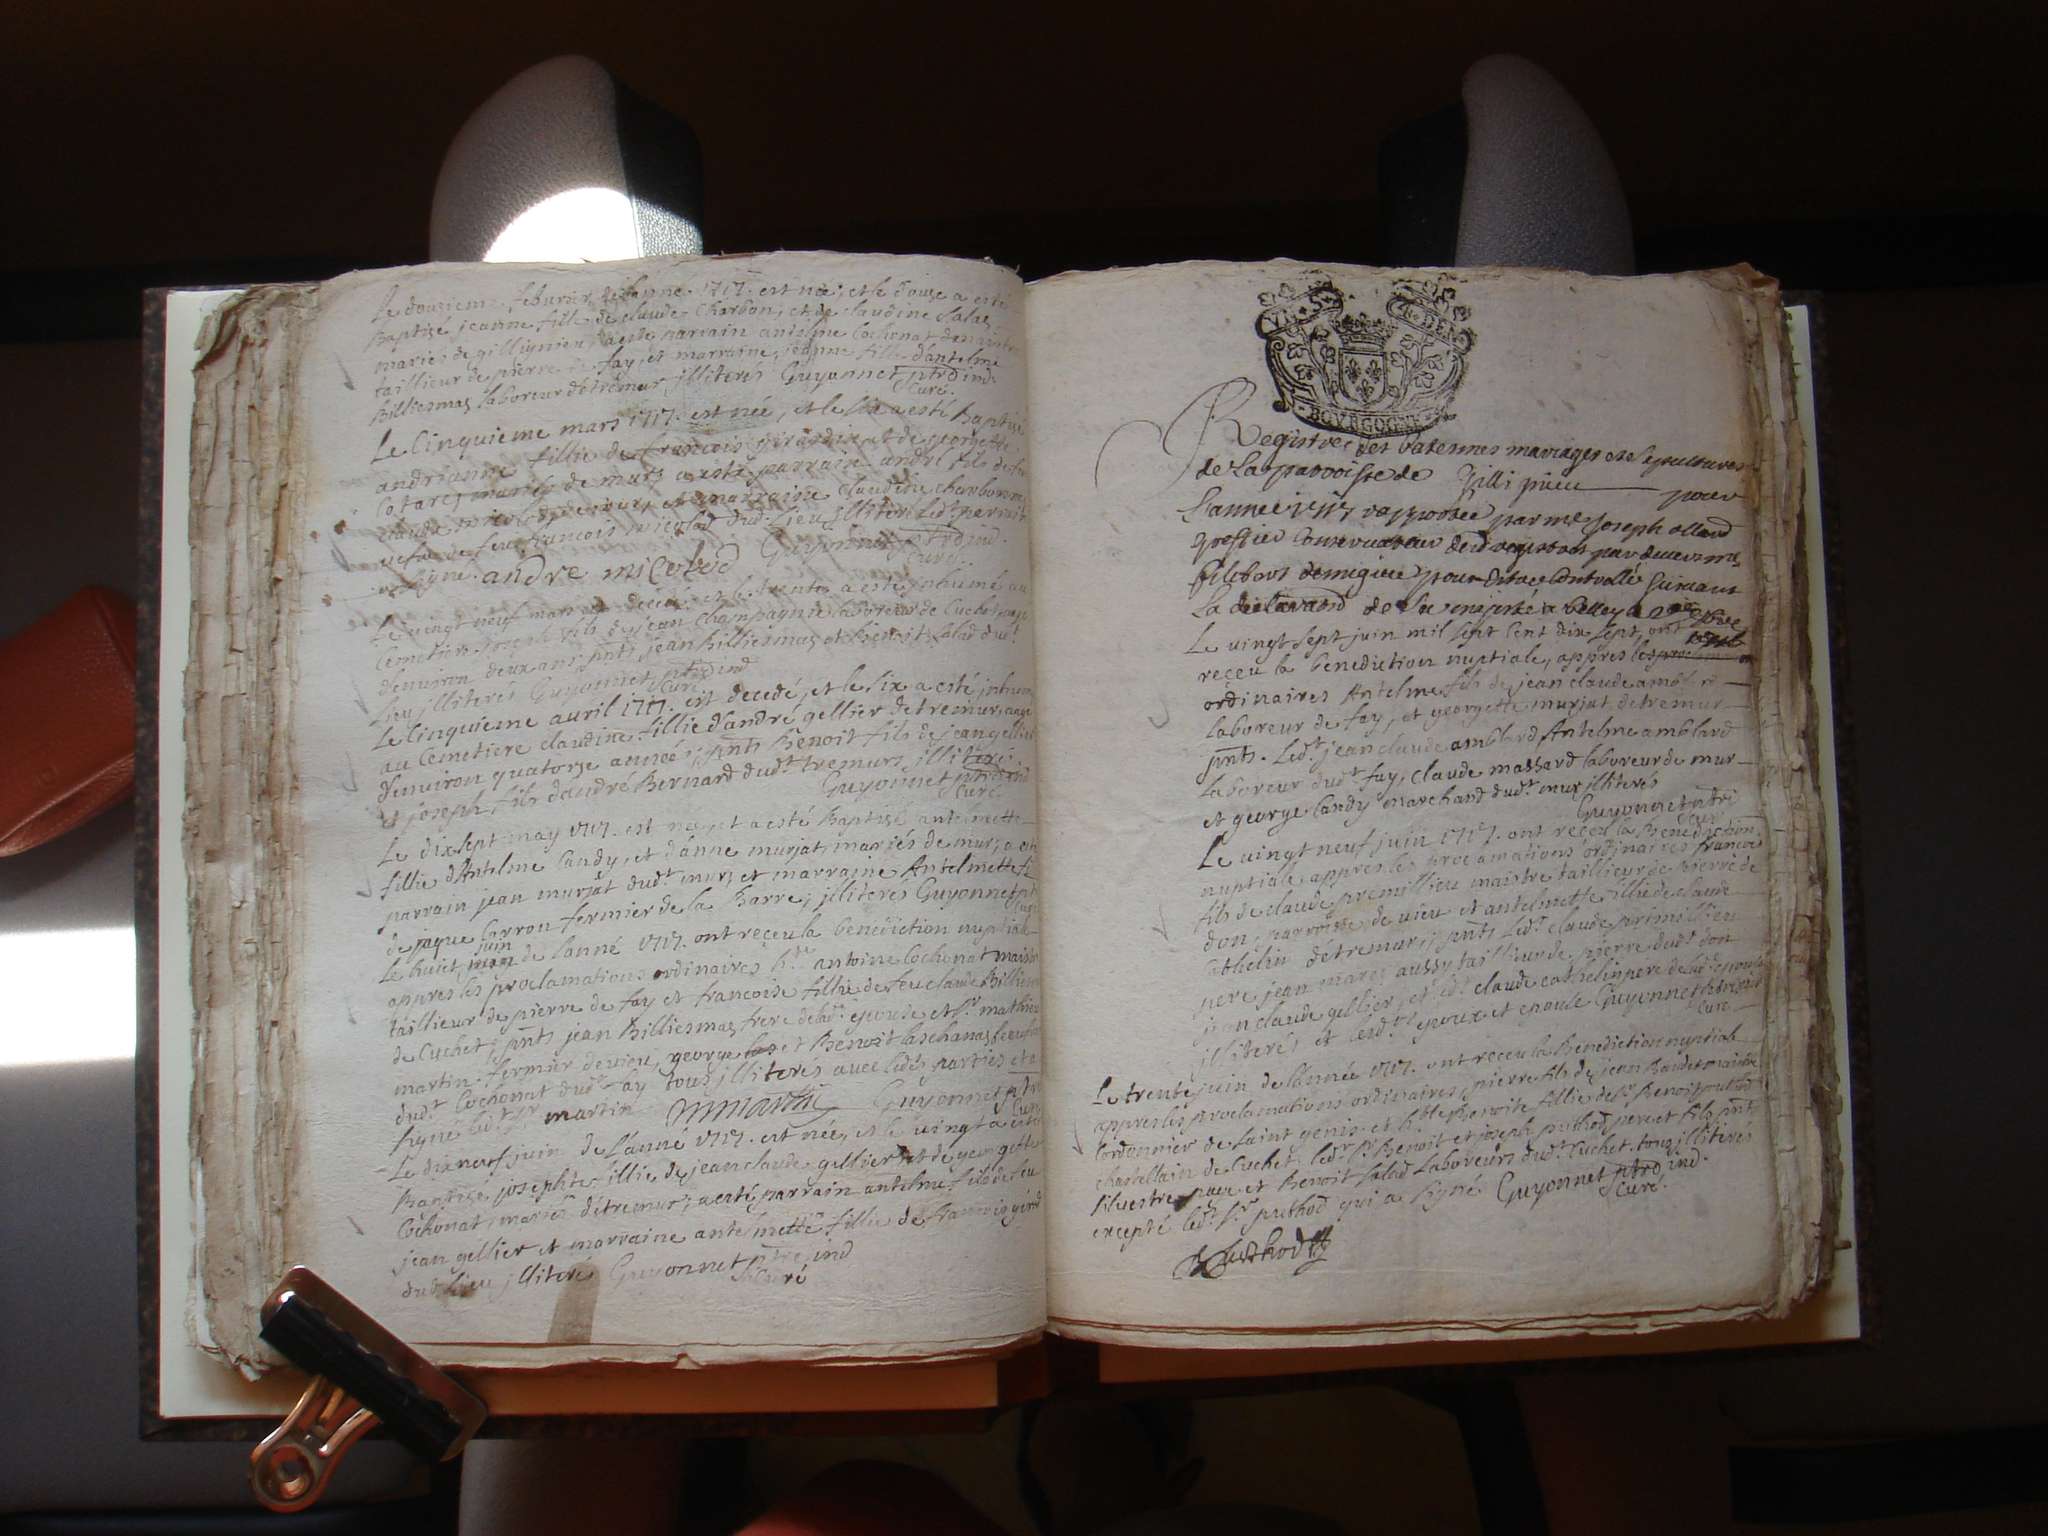 Le douzieme feburier de lanne 1717. est née, et le douze a esté
Baptisé jeanne fille de claude Charbon, et de claudine Salaz
mariés de gillignieu, a esté parrain antelme Cochonat
taillieur de pierre de fay, et marraine, jeanne fille d'antelme
Billiemaz laboreur détremur jlliterés Guyonnet ptre ind.
Curé.
Le Cinquieme mars 1717. est née, et le six a esté Baptisé
andrianne fillie de francois girardin et de georgette
Cotarez mariés de murs a esté parrain andré fils de feu
claude micolod et marraine claudine charbon
vefue de feu francois micolod dud. Lieu jlliteré Led. parrain
a signe. andre micolod Guyonnet ptre ind.
Curé.
Le vingt neuf mars est décédé, et le trente a esté inhumé au
Cemetiere joseph fils de jean Champagnie laboreur de Cuchet
d'enuiron deux ans pnts jean Billiemaz et Benoit Salad dud.t
Lieu jlliterés Guyonnet ptre ind
Curé
Le Cinquieme auril 1717. est decedé, et le six a esté jnhumé
au Cemetiere claudine fillie d'andré gellier detremur, aagé
d'enuiron quatorze année, pnts Benoit fils de jean gellier
et joseph fils d'andré Bernard dud.t tremurs jlliterés.
Guyonnet ptre ind
Curé
Le dixsept may 1717. est née, et a esté Baptisé antelmette
fillie d'Antelme Candy, et d'anne murjat, mariés de mur, a esté
parrain jean murjat dud.t murs et marraine Antelmette fi
de jaque Carron fermier de la Barre, jlliterés Guyonnet ptr
Curé
juin
Le huict may de lanné 1717. ont reçeu la benediction nuptiale
appres les proclamations ordinaires h.te antoine Cochonat maistre
taillieur de pierre de fay et francoise fillie de feu claude Billiem
de Cuchet, pnts jean Billiemaz frere de lad. epouse et s.r mathieu
martin fermier de vieu, george et Benoit
dud.t Cochonat dud.t fay tous jlliterés auec led.s parties et a
signé led.t s.r martin MMartin Guyonnet ptre
Curé
Le dixneuf juin de L'anne 1717. est née, et le vingt a esté
Baptisé josephte fillie de jean claude gellier et de georgette
Cochonat, mariés d'étremur, a esté parrain antelme fils de feu
jean gellier et marraine antelmette fillie de francois girod
dud. lieu jlliteré Guyonnet ptre ind
Curé
VN S. & DEN
BOVRGOGNE
Registre des Batesmes mariages et sepultures
de La parroisse de Gillinieu pour
L'année 1717 rapportée par me Joseph ollard
greffier Conseruateur desd registres
La declaraon de Sa majesté a Belley
Le vingt sept juin mil sept Cent dix sept, ont
reçeu la benediction nuptiale, appres les proclama
ordinaires Antelme fils de jean claude amblard
Laboreur de fay, et georgette murjat detremur
pnts. Led.t jean claude amblard Antelme amblard
Laboreur dud.t fay, claude massard laboreur de mur
et george Candy marchand dud.t mur jlliterés
Guyonnet ptre
Curé
Le vingt neuf juin 1717. ont reçeu la Benediction
nuptiale appres les proclamations ordinaires francois
fils de claude premillieu maistre taillieur de pierre de
don, parroisse de vieu et antelmette fillie de claude
Cathelin d'étremurs, pnts Led.t claude primillieu
pere jean marez aussy taillieur de pierre dud.t don
jean claude gellier, et led.t claude cathelin pere de lad.te epouse
jlliterés et lesd.ts epoux et epouse Guyonnet ptre ind
Curé
Le trente juin de l'année 1717. ont reçeu la Benediction nuptiale
appres les proclamations ordinaires, pierre fils de jean Baudet maistre
Cordonnier de saint genis et h.ble Benoite fillie de s.r Benoit puthod
chastellain de Cuchet. led.t s.r Benoit et joseph puthod pere et fils pnts
siluestre page et Benoit Salad Laboreurs dud.t Cuchet. tous jlliterés
excepté led.t s.r puthod qui a signé Guyonnet ptre ind.
Curé.
B Puthod